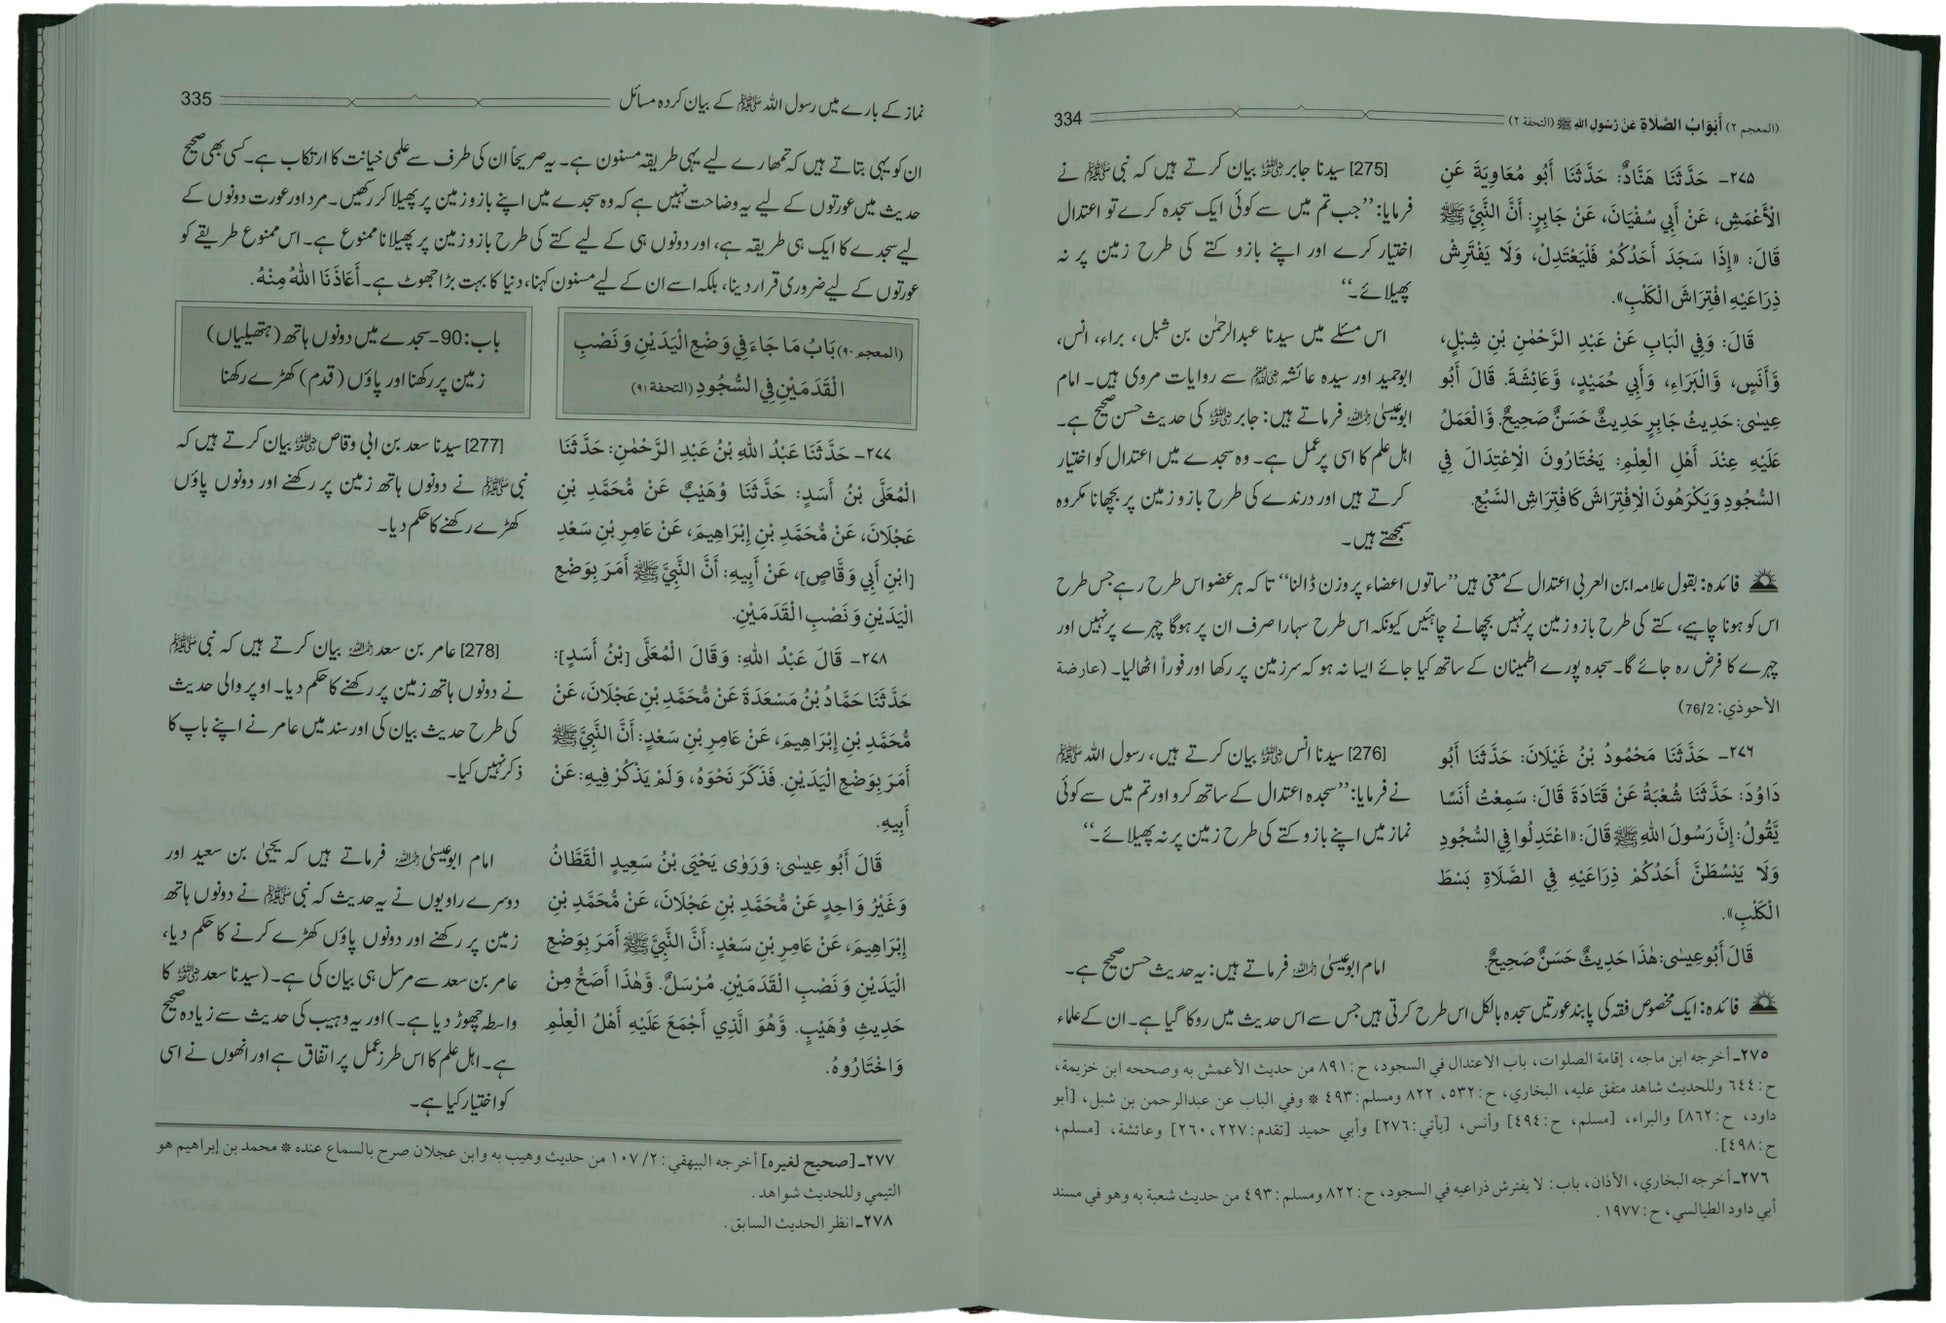 (المعجم ٢) أَبْوَابُ الصَّلَاةِ عَنْ رَسُولِ اللهِ ﷺ (التحفة ٢) 334
٢٧٥ـ حَدَّثَنَا هَنَّادٌ: حَدَّثَنَا أَبُو مُعَاوِيَةَ عَنِ
الْأَعْمَشِ، عَنْ أَبِي سُفْيَانَ، عَنْ جَابِرٍ: أَنَّ النَّبِيَّ ﷺ
قَالَ: «إِذَا سَجَدَ أَحَدُكُمْ فَلْيَعْتَدِلْ، وَلَا يَفْتَرِشْ
ذِرَاعَيْهِ افْتِرَاشَ الْكَلْبِ».
قَالَ: وَفِي الْبَابِ عَنْ عَبْدِ الرَّحْمٰنِ بْنِ شِبْلٍ،
وَّأَنَسٍ، وَّالْبَرَاءِ، وَأَبِي حُمَيْدٍ، وَّعَائِشَةَ. قَالَ أَبُو
عِيسٰى: حَدِيثُ جَابِرٍ حَدِيثٌ حَسَنٌ صَحِيحٌ. وَّالْعَمَلُ
عَلَيْهِ عِنْدَ أَهْلِ الْعِلْمِ: يَخْتَارُونَ الْاِعْتِدَالَ فِي
السُّجُودِ وَيَكْرَهُونَ الْاِفْتِرَاشَ كَافْتِرَاشِ السَّبُعِ.
[275] سیدنا جابر ؓ بیان کرتے ہیں کہ نبی ﷺ نے
فرمایا: ’’جب تم میں سے کوئی ایک سجدہ کرے تو اعتدال
اختیار کرے اور اپنے بازو کتے کی طرح زمین پر نہ
پھیلائے۔‘‘
اس مسئلے میں سیدنا عبدالرحمٰن بن شبل، براء، انس،
ابوحمید اور سیدہ عائشہ ؓ سے روایات مروی ہیں۔ امام
ابوعیسیٰ ؒ فرماتے ہیں: جابر ؓ کی حدیث حسن صحیح ہے۔
اہل علم کا اسی پر عمل ہے۔ وہ سجدے میں اعتدال کو اختیار
کرتے ہیں اور درندے کی طرح بازو زمین پر بچھانا مکروہ
سمجھتے ہیں۔
فائدہ: بقول علامہ ابن العربی اعتدال کے معنی ہیں ’’ساتوں اعضاء پر وزن ڈالنا‘‘ تاکہ ہر عضو اس طرح رہے جس طرح
اس کو ہونا چاہیے، کتے کی طرح بازو زمین پر نہیں بچھانے چاہئیں کیونکہ اس طرح سہارا صرف ان پر ہوگا چہرے پر نہیں اور
چہرے کا فرض رہ جائے گا۔ سجدہ پورے اطمینان کے ساتھ کیا جائے ایسا نہ ہو کہ سر زمین پر رکھا اور فوراً اٹھا لیا۔ (عارضة
الأحوذي: 76/2)
٢٧٦ـ حَدَّثَنَا مَحْمُودُ بْنُ غَيْلَانَ: حَدَّثَنَا أَبُو
دَاوُدَ: حَدَّثَنَا شُعْبَةُ عَنْ قَتَادَةَ قَالَ: سَمِعْتُ أَنَسًا
يَّقُولُ: إِنَّ رَسُولَ اللهِ ﷺ قَالَ: «اعْتَدِلُوا فِي السُّجُودِ
وَلَا يَبْسُطَنَّ أَحَدُكُمْ ذِرَاعَيْهِ فِي الصَّلَاةِ بَسْطَ
الْكَلْبِ».
قَالَ أَبُو عِيسٰى: هٰذَا حَدِيثٌ حَسَنٌ صَحِيحٌ.
[276] سیدنا انس ؓ بیان کرتے ہیں، رسول اللہ ﷺ
نے فرمایا: ’’سجدہ اعتدال کے ساتھ کرو اور تم میں سے کوئی
نماز میں اپنے بازو کتے کی طرح زمین پر نہ پھیلائے۔‘‘
امام ابوعیسیٰ ؒ فرماتے ہیں: یہ حدیث حسن صحیح ہے۔
فائدہ: ایک مخصوص فقہ کی پابند عورتیں سجدہ بالکل اس طرح کرتی ہیں جس سے اس حدیث میں روکا گیا ہے۔ ان کے علماء
٢٧٥ـ أخرجه ابن ماجه، إقامة الصلوات، باب الاعتدال في السجود، ح: ٨٩١ من حديث الأعمش به وصححه ابن خزيمة،
ح: ٦٤٤ وللحديث شاهد متفق عليه، البخاري، ح: ٥٣٢، ٨٢٢ ومسلم: ٤٩٣ * وفي الباب عن عبدالرحمن بن شبل، [أبو
داود، ح: ٨٦٢] والبراء، [مسلم، ح: ٤٩٤] وأنس، [يأتي: ٢٧٦] وأبي حميد [تقدم: ٢٢٧، ٢٦٠] وعائشة، [مسلم،
ح: ٤٩٨].
٢٧٦ـ أخرجه البخاري، الأذان، باب: لا يفترش ذراعيه في السجود، ح: ٨٢٢ ومسلم: ٤٩٣ من حديث شعبة به وهو في مسند
أبي داود الطيالسي، ح: ١٩٧٧.
نماز کے بارے میں رسول اللہ ﷺ کے بیان کردہ مسائل 335
ان کو یہی بتاتے ہیں کہ تمھارے لیے یہی طریقہ مسنون ہے۔ یہ صریحاً ان کی طرف سے علمی خیانت کا ارتکاب ہے۔ کسی بھی صحیح
حدیث میں عورتوں کے لیے یہ وضاحت نہیں ہے کہ وہ سجدے میں اپنے بازو زمین پر پھیلا کر رکھیں۔ مرد اور عورت دونوں کے
لیے سجدے کا ایک ہی طریقہ ہے، اور دونوں ہی کے لیے کتے کی طرح بازو زمین پر پھیلانا ممنوع ہے۔ اس ممنوع طریقے کو
عورتوں کے لیے ضروری قرار دینا، بلکہ اسے ان کے لیے مسنون کہنا، دنیا کا بہت بڑا جھوٹ ہے۔ أَعَاذَنَا اللهُ مِنْهُ.
(المعجم ٩٠) بَابُ مَا جَاءَ فِي وَضْعِ الْيَدَيْنِ وَنَصْبِ
الْقَدَمَيْنِ فِي السُّجُودِ (التحفة ٩١)
باب: 90۔ سجدے میں دونوں ہاتھ (ہتھیلیاں)
زمین پر رکھنا اور پاؤں (قدم) کھڑے رکھنا
٢٧٧ـ حَدَّثَنَا عَبْدُ اللهِ بْنُ عَبْدِ الرَّحْمٰنِ: حَدَّثَنَا
الْمُعَلَّى بْنُ أَسَدٍ: حَدَّثَنَا وُهَيْبٌ عَنْ مُّحَمَّدِ بْنِ
عَجْلَانَ، عَنْ مُّحَمَّدِ بْنِ إِبْرَاهِيمَ، عَنْ عَامِرِ بْنِ سَعْدِ
[ابْنِ أَبِي وَقَّاصٍ]، عَنْ أَبِيهِ: أَنَّ النَّبِيَّ ﷺ أَمَرَ بِوَضْعِ
الْيَدَيْنِ وَنَصْبِ الْقَدَمَيْنِ.
[277] سیدنا سعد بن ابی وقاص ؓ بیان کرتے ہیں کہ
نبی ﷺ نے دونوں ہاتھ زمین پر رکھنے اور دونوں پاؤں
کھڑے رکھنے کا حکم دیا۔
٢٧٨ـ قَالَ عَبْدُ اللهِ: وَقَالَ الْمُعَلَّى [بْنُ أَسَدٍ]:
حَدَّثَنَا حَمَّادُ بْنُ مَسْعَدَةَ عَنْ مُّحَمَّدِ بْنِ عَجْلَانَ، عَنْ
مُّحَمَّدِ بْنِ إِبْرَاهِيمَ، عَنْ عَامِرِ بْنِ سَعْدٍ: أَنَّ النَّبِيَّ ﷺ
أَمَرَ بِوَضْعِ الْيَدَيْنِ. فَذَكَرَ نَحْوَهُ، وَلَمْ يَذْكُرْ فِيهِ: عَنْ
أَبِيهِ.
[278] عامر بن سعد ؒ بیان کرتے ہیں کہ نبی ﷺ
نے دونوں ہاتھ زمین پر رکھنے کا حکم دیا۔ اوپر والی حدیث
کی طرح حدیث بیان کی اور سند میں عامر نے اپنے باپ کا
ذکر نہیں کیا۔
قَالَ أَبُو عِيسٰى: وَرَوٰى يَحْيَى بْنُ سَعِيدٍ الْقَطَّانُ
وَغَيْرُ وَاحِدٍ عَنْ مُّحَمَّدِ بْنِ عَجْلَانَ، عَنْ مُّحَمَّدِ بْنِ
إِبْرَاهِيمَ، عَنْ عَامِرِ بْنِ سَعْدٍ: أَنَّ النَّبِيَّ ﷺ أَمَرَ بِوَضْعِ
الْيَدَيْنِ وَنَصْبِ الْقَدَمَيْنِ. مُرْسَلٌ. وَّهٰذَا أَصَحُّ مِنْ
حَدِيثِ وُهَيْبٍ. وَّهُوَ الَّذِي أَجْمَعَ عَلَيْهِ أَهْلُ الْعِلْمِ
وَاخْتَارُوهُ.
امام ابوعیسیٰ ؒ فرماتے ہیں کہ یحییٰ بن سعید اور
دوسرے راویوں نے یہ حدیث کہ نبی ﷺ نے دونوں ہاتھ
زمین پر رکھنے اور دونوں پاؤں کھڑے کرنے کا حکم دیا،
عامر بن سعد سے مرسل ہی بیان کی ہے۔ (سیدنا سعد ؓ کا
واسطہ چھوڑ دیا ہے۔) اور یہ وہیب کی حدیث سے زیادہ صحیح
ہے۔ اہل علم کا اس طرز عمل پر اتفاق ہے اور انھوں نے اسی
کو اختیار کیا ہے۔
٢٧٧ـ [صحيح لغيره] أخرجه البيهقي: ٢/ ١٠٧ من حديث وهيب به وابن عجلان صرح بالسماع عنده * محمد بن إبراهيم هو
التيمي وللحديث شواهد.
٢٧٨ـ انظر الحديث السابق.